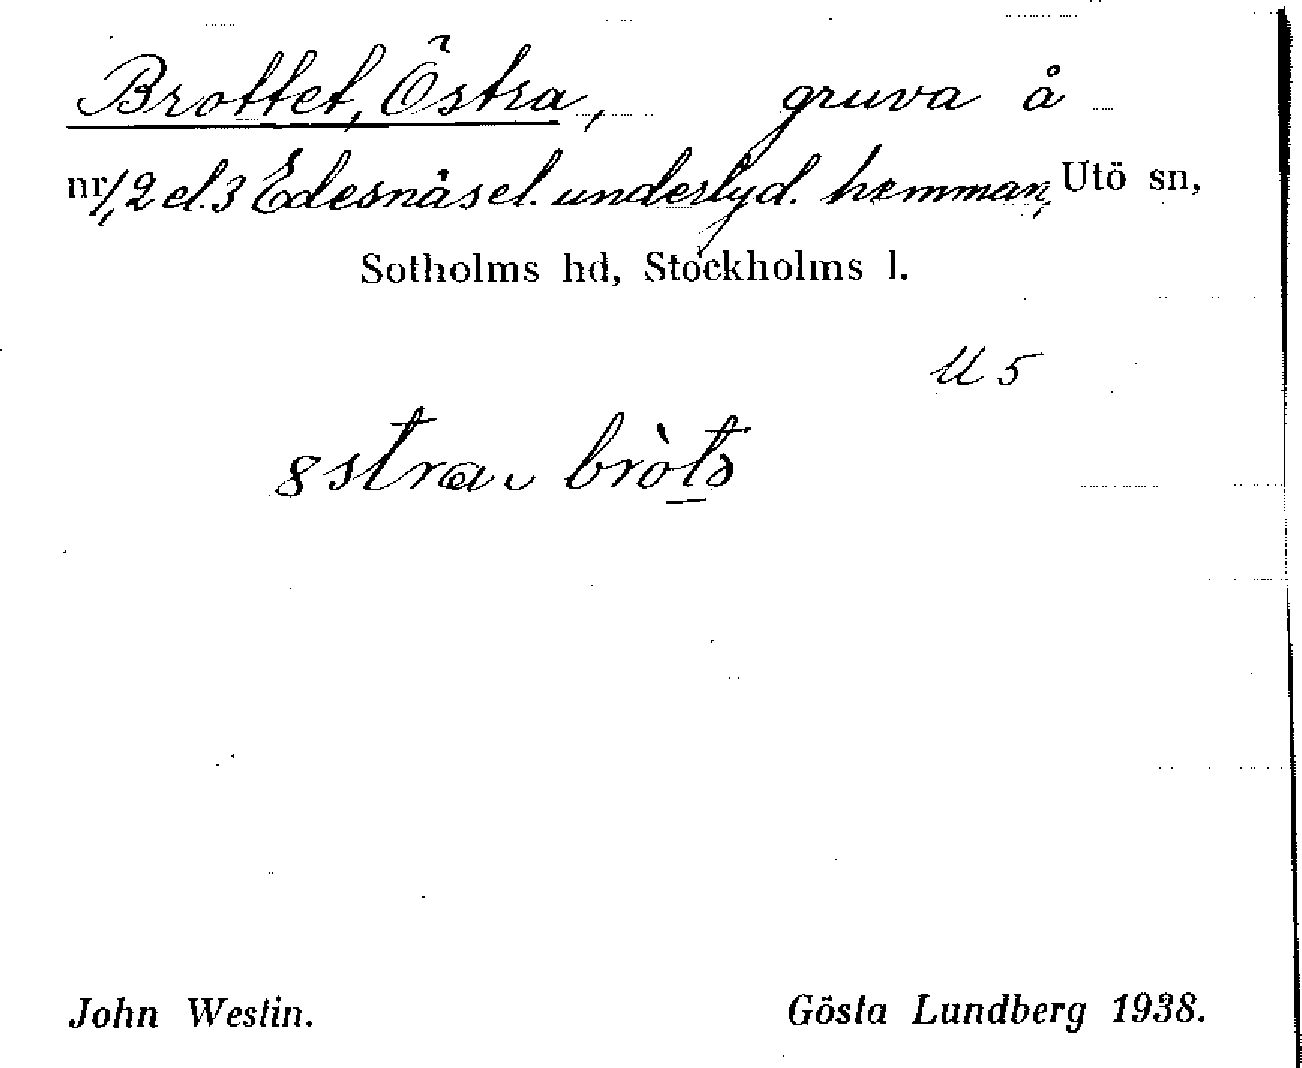 Brottet, Östra, gruva å
nr 1, 2 el. 3 Edesnäs el. underlyd. hemman, Utö sn,
Sotholms hd, Stockholms l.
U 5
östra bròtə
John Westin. Gösta Lundberg 1938.